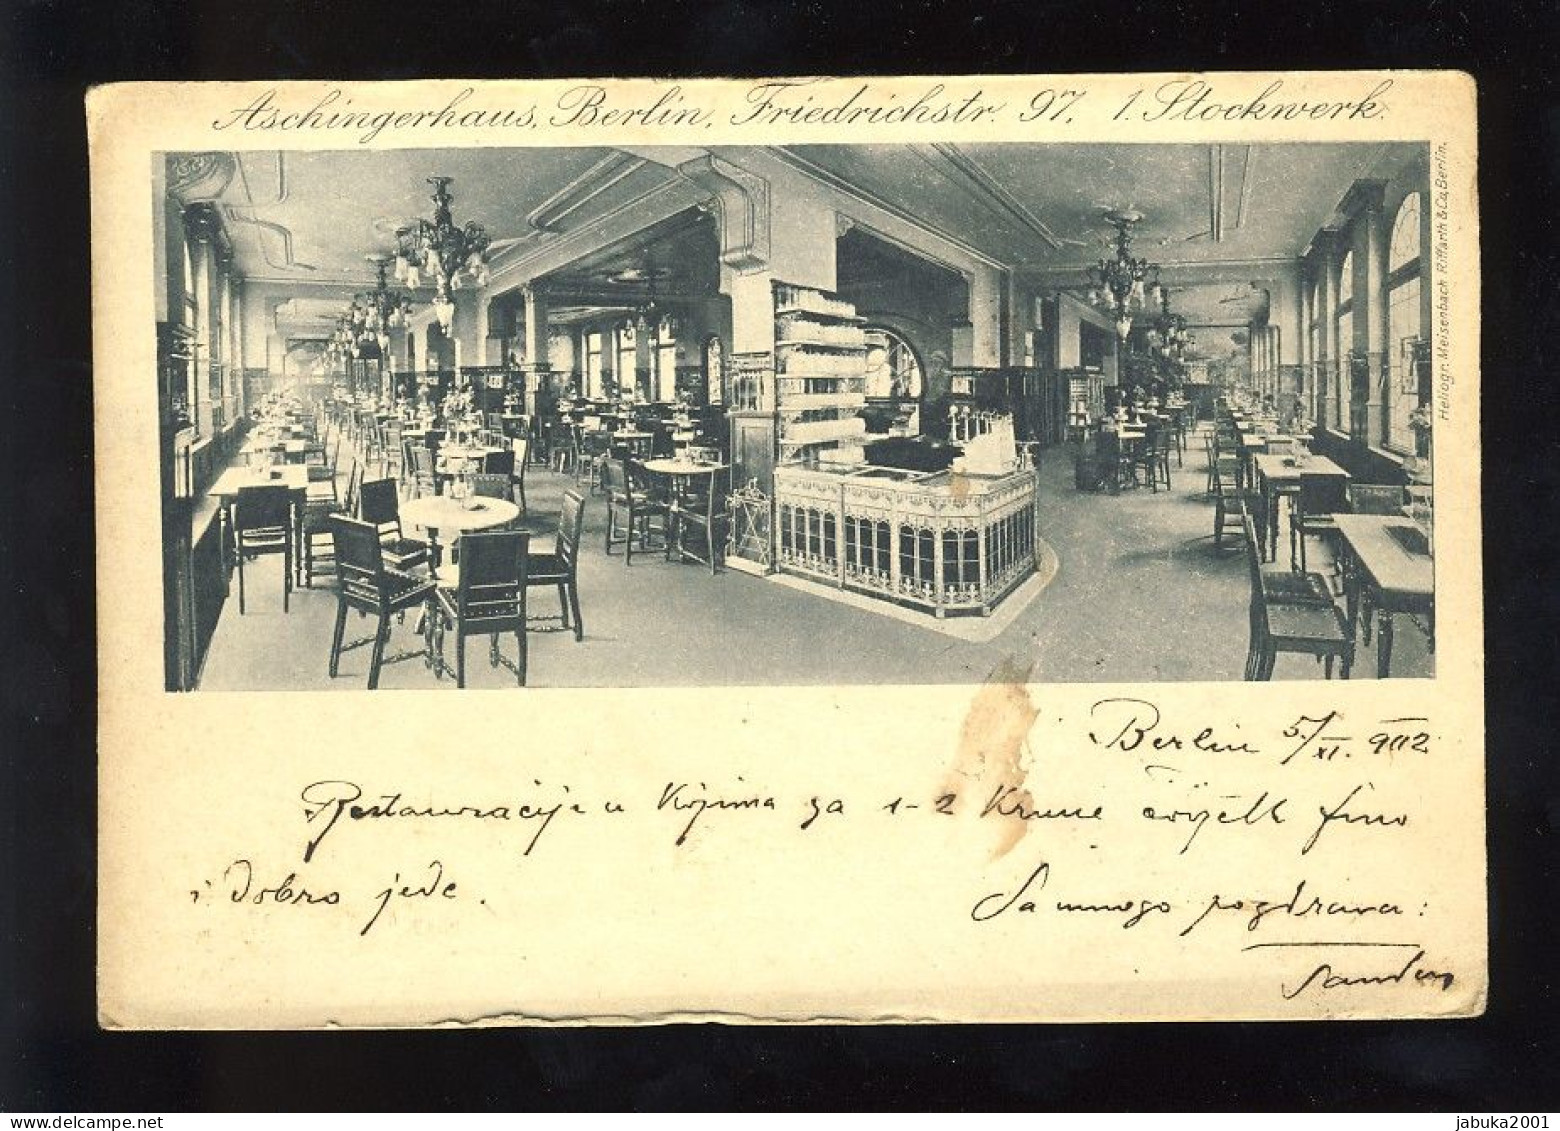 Aschingerhaus, Berlin, Friedrichstr. 97, 1. Stockwerk.
Heliogr. Meisenbach Riffarth & Co, Berlin.
Berlin 5./XI. 902
Restauracije u kojima za 1-2 Krune čovjek fino
i dobro jede.
Sa mnogo pozdrava:
jabuka2001